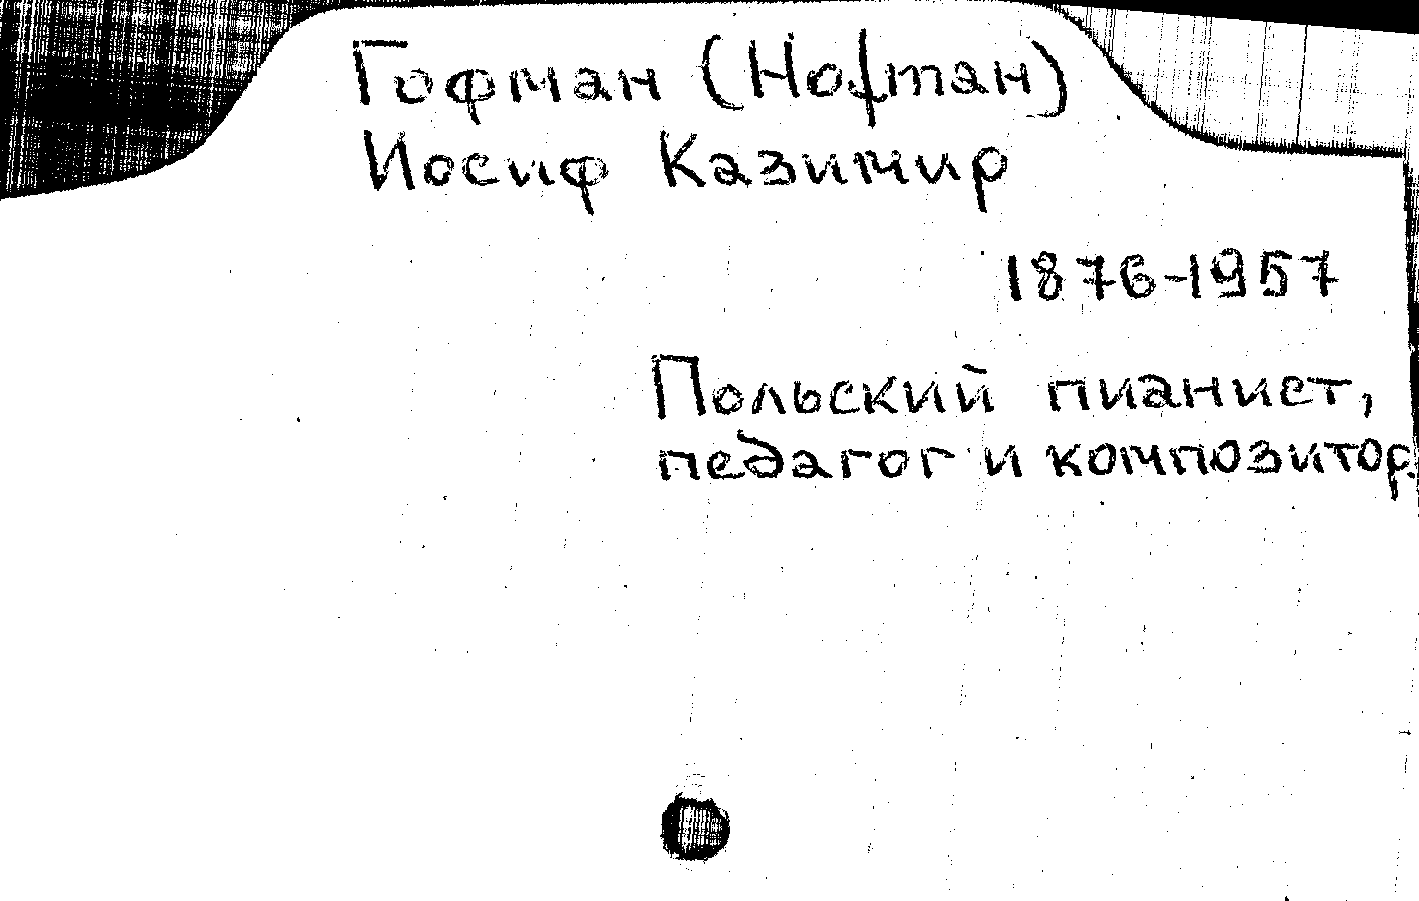 Гофман (Hofman)
Иосиф Казимир
1876-1957
Польский пианист,
педагог и композитор.